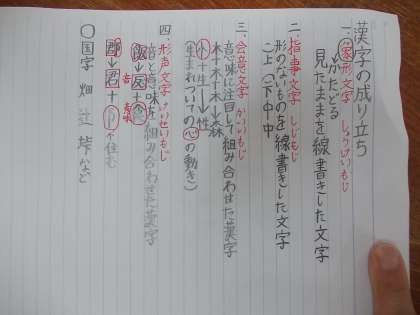 漢字の成り立ち
一、象形文字 しょうけいもじ
かたどる
見たままを線書きした文字
二、指事文字 しじもじ
形のないものを線書きした文字
上 下 中
三、会意文字 かいいもじ
意味に注目して組み合わせた漢字
木+木+木→森
忄+生→性
(生まれついての心の動き)
四、形声文字 けいせいもじ
音と意味を組み合わせた漢字
音
郡→君+阝
住む
〇国字 畑 辻 峠など